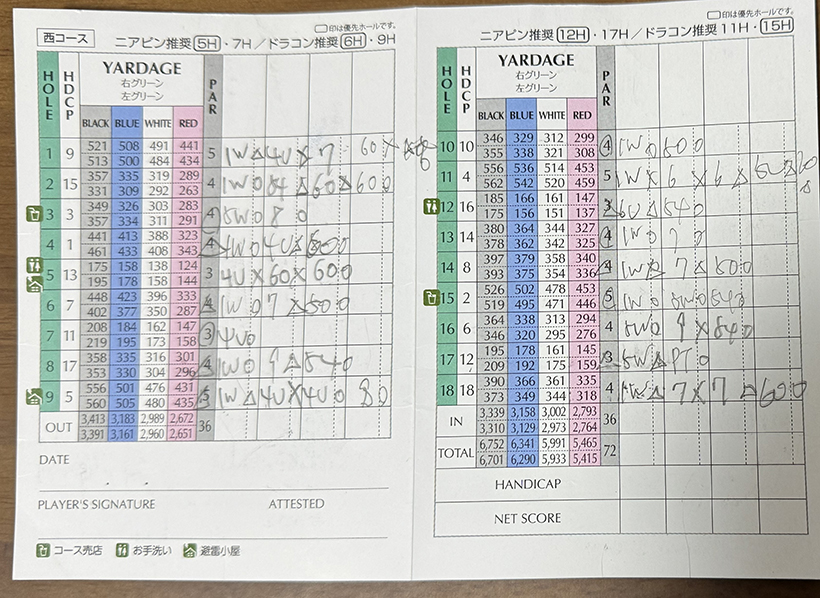 西コース
□印は優先ホールです。
ニアピン推奨 5H・7H／ドラコン推奨 6H・9H
HOLE HDCP YARDAGE PAR
右グリーン
左グリーン
BLACK BLUE WHITE RED
1 9 521 508 491 441 5 1W △ 4U × 7
513 500 484 434
2 15 357 335 319 289 4 1W 0 54 △ 60 △ 60 0
331 309 292 263
3 3 349 326 303 283 4 5W 0 8 0
357 334 311 291
4 1 441 413 388 323 4 1W 0 4U × 50 0
461 433 408 343
5 13 175 158 138 124 3 4U × 60 × 60 0
195 178 158 144
6 7 448 423 396 333 4 1W 0 7 △ 50 0
402 377 350 287
7 11 208 184 162 147 3 4U 0
219 195 173 158
8 17 358 335 316 301 4 1W 0 9 △ 54 0
353 330 304 296
9 5 556 501 476 431 5 1W △ 4U × 4U 0 8 0
560 505 480 435
OUT 3,413 3,183 2,989 2,672 36
3,391 3,161 2,960 2,651
DATE
PLAYER'S SIGNATURE ATTESTED
コース売店 お手洗い 避雷小屋
□印は優先ホールです。
ニアピン推奨 12H・17H／ドラコン推奨 11H・15H
HOLE HDCP YARDAGE PAR
右グリーン
左グリーン
BLACK BLUE WHITE RED
10 10 346 329 312 299 4 1W 0 50 0
355 338 321 308
11 4 556 536 514 453 5 1W × 6 × 6 △ 50 △
562 542 520 459
12 16 185 166 161 147 3 6U △ 54 0
175 156 151 137
13 14 380 364 344 327 4 1W 0 9 0
378 362 342 325
14 8 397 379 358 340 4 1W △ 7 △ 50 0
393 375 354 336
15 2 526 502 478 453 5 1W 0 5W 0 54 0
519 495 471 446
16 6 364 338 313 294 4 5W 0 9 × 54 0
346 320 295 276
17 12 195 178 161 145 3 5W △ PT 0
209 192 175 159
18 18 390 366 361 335 4 1W △ 7 × 7 △ 60 0
373 349 344 318
IN 3,339 3,158 3,002 2,793 36
3,310 3,129 2,973 2,764
TOTAL 6,752 6,341 5,991 5,465 72
6,701 6,290 5,933 5,415
HANDICAP
NET SCORE